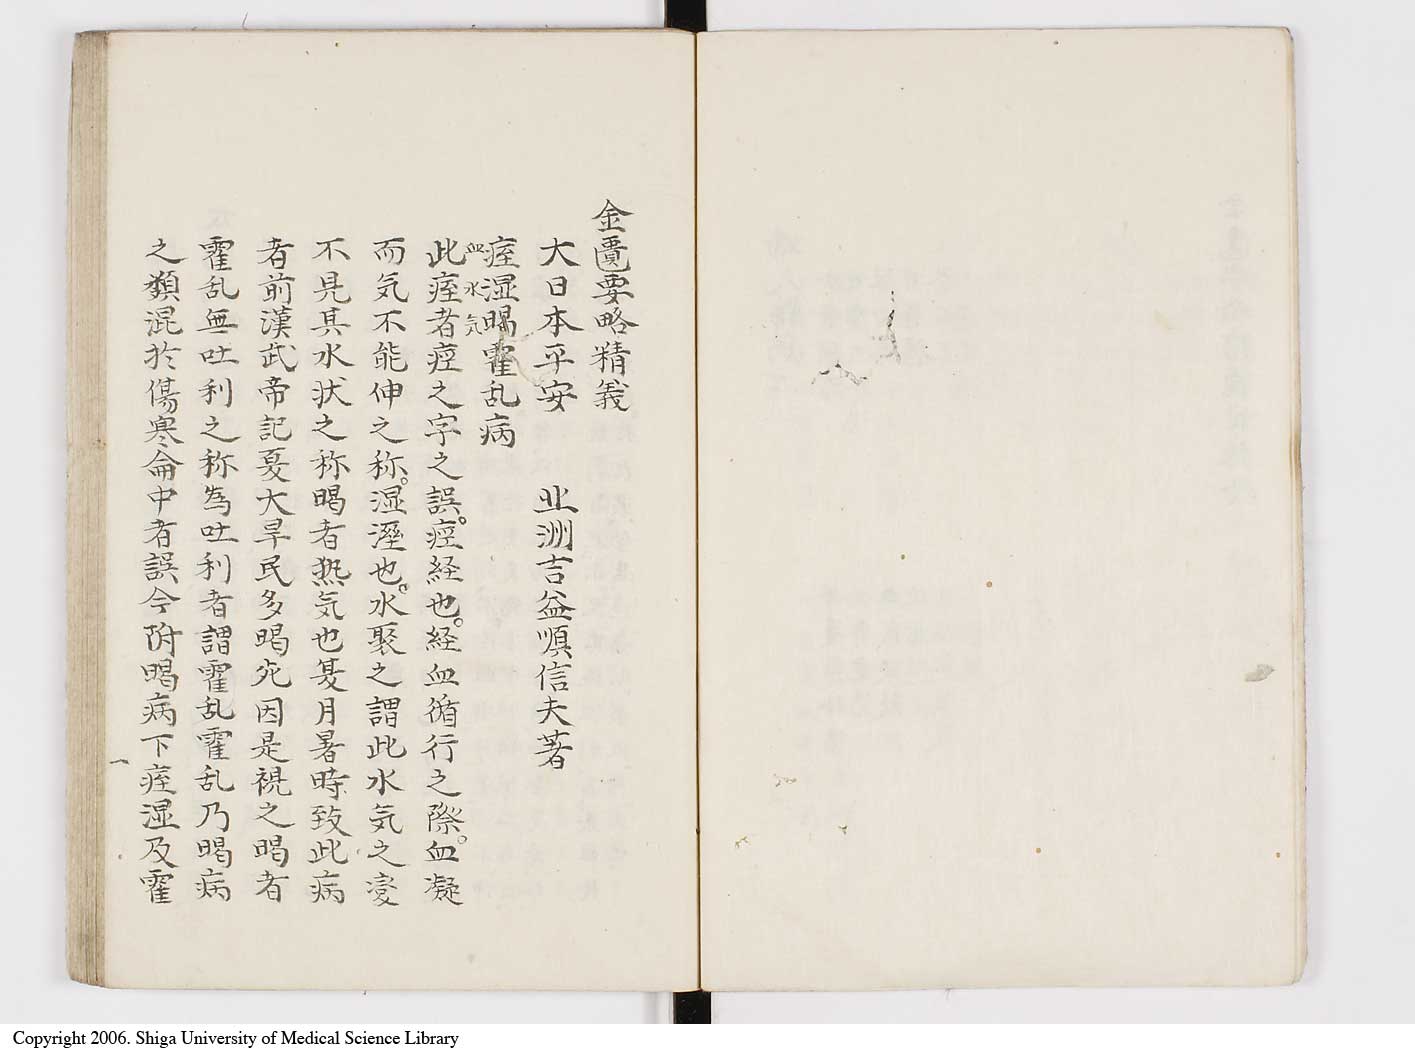 金匱要略精義
大日本平安　　　北洲吉益順信夫著
痓湿暍霍乱病
血水気
此痓者痙之字之誤。痙経也。経血循行之際。血凝
而気不能伸之称。湿溼也。水聚之謂此水気之変
不見其水状之称暍者热気也夏月暑時致此病
者前漢武帝記夏大旱民多暍死因是視之暍者
霍乱無吐利之称為吐利者謂霍乱霍乱乃暍病
之類混於傷寒侖中者誤今附暍病下痓湿及霍
Copyright 2006. Shiga University of Medical Science Library